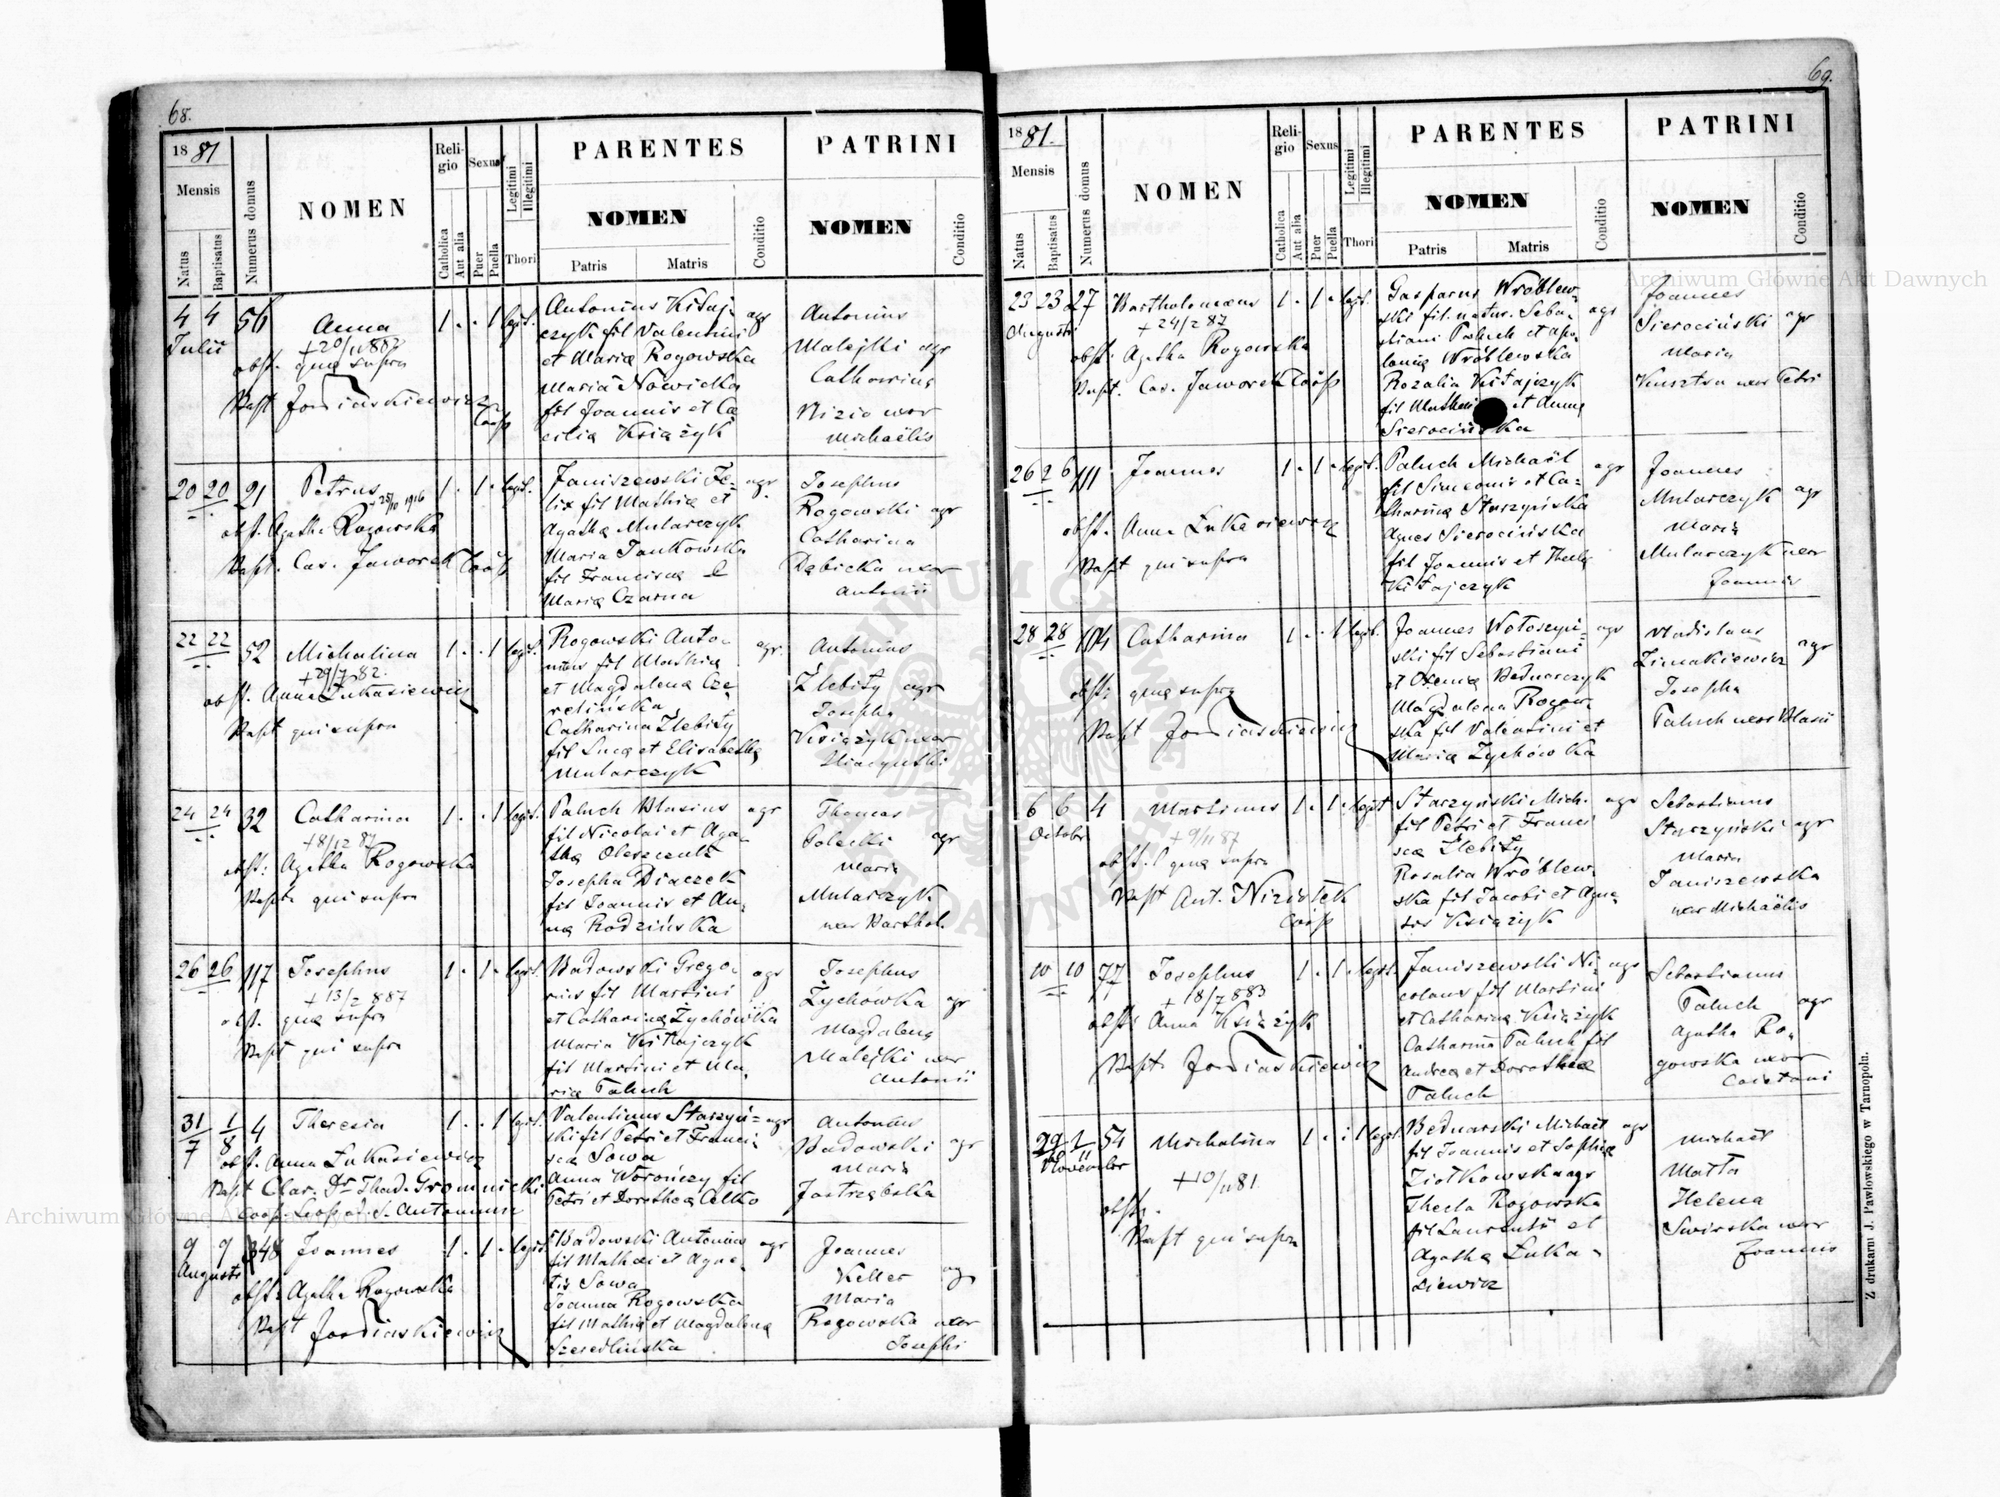 68.
1881
Mensis
Natus
Baptisatus
Numerus domus
NOMEN
Religio
Catholica
Aut alia
Sexus
Puer
Puella
Legitimi
Illegitimi
Thori
PARENTES
NOMEN
Patris
Matris
Conditio
PATRINI
NOMEN
Conditio
4 4 56 Anna 1 . . 1 legit.
Julii
+20/11 887
obst. quæ supra
Bapt Jordiaskiewicz
Coop
Antonius Kitaj-
czyk fil Valentini
et Maria Rogowska
Maria Nowicka
fil Joannis et Cæ
cilia Książyk
agr
Antonius
Malejki agr
Catharina
Nizio uxor
Michaëlis
20 20 21 Petrus 1 . 1 . legit.
25/10 1916
obst. Agatha Rogowska
Bapt. Cas. Jaworek Coop
Janiszewski Fe-
lix fil Mathiæ et
Agatha Mularczyk
Maria Jankowska
fil Francisca &
Maria Czarna
agr.
Josephus
Rogowski agr
Catharina
Dębicka uxor
Antonii
22 22 52 Michalina 1 . . 1 legit.
+29/7 82.
obst. Anna Łukasiewicz
Bapt qui supra
Rogowski Anto-
nius fil Mathiæ
et Magdalena Cze
relińska
Catharina Zlebity
fil Luca et Elisabetha
Mularczyk
agr.
Antonius
Zlebity agr
Josepha
Książyk uxor
Hiacynthi
24 24 32 Catharina 1 . . 1 legit.
+8/12 87
obst: Agatha Rogowska
Bapt. qui supra
Paluch Blasius
fil Nicolai et Aga-
tha Oleszczuk
Josepha Diaczek
fil Joannis et An-
na Rodzińska
agr
Thomas
Polecki agr
Maria
Mularczyk
uxor Barthol.
26 26 117 Josephus 1 . 1 . legit.
+13/2 887
obst. quæ supra
Bapt qui supra
Badowski Grego-
rius fil Martini
et Catharina Zychówka
Maria Kitajczyk
fil Martini et Ma-
ria Paluch
agr
Josephus
Żychówka agr
Magdalena
Malejki uxor
Antonii
31/7 1/8 4 Theresia 1 . . 1 legit.
obst. Anna Łukasiewicz
Bapt Clar. Dr Thad. Gromnicki
Valentinus Starzyń-
ski fil Petri et Franci-
sca Sowa
Anna Worończy fil
Petri et Dorothea Całko
agr
Antonius
Badowski agr
Maria
Jastrzębska
9 9 348 Joannes 1 . 1 . legit
Augusti
obst: Agatha Rogowska
Bapt Jordiaskiewicz
Badowski Antonius
fil Mathæi et Agne-
tis Sowa
Joanna Rogowska
fil Mathiæ et Magdalena
Szeredlińska
agr
Joannes
Keller agr
Maria
Rogowska uxor
Josephi
69.
1881.
Mensis
Natus
Baptisatus
Numerus domus
NOMEN
Religio
Catholica
Aut alia
Sexus
Puer
Puella
Legitimi
Illegitimi
Thori
PARENTES
NOMEN
Patris
Matris
Conditio
PATRINI
NOMEN
Conditio
23 23 27 Bartholomæus 1 . 1 . legit.
Augusti
+24/2 87
obst: Agatha Rogowska
Bapt. Cas. Jaworek Coop
Gasparus Wróblew-
ski fil. natur. Seba-
stiani Paluch et Apo-
lonia Wróblewska
Rozalia Kitajczyk
fil Mathæi et Anna
Sierocińska
agr
Joannes
Sierociński agr
Maria
Kusztra uxor Petri
26 26 111 Joannes 1 . 1 . legit.
obst. Anna Łukasiewicz
Bapt qui supra
Paluch Michaël
fil Simeonis et Ca-
tharina Starzyńska
Agnes Sierocińska
fil Joannis et Thecla
Kitajczyk
agr
Joannes
Mularczyk agr
Maria
Mularczyk uxor
Joannis
28 28 104 Catharina 1 . . 1 legit.
obst: quæ supra
Bapt Jordiaskiewicz
Joannes Wołoszyń-
ski fil Sebastiani
et Oxenia Bednarczyk
Magdalena Rogow-
ska fil Valentini et
Maria Zychówka
agr
Vladislaus
Zimakiewicz agr
Josepha
Paluch uxor Blasii
6 6 4 Martinus 1 . 1 . legit
Octobr
+9/11 87
obst. quæ supra
Bapt Ant. Niziołek
Coop
Starzyński Mich.
fil Petri et Franci
sca Zlebity
Rosalia Wróblew-
ska fil Jacobi et Agne-
tis Książyk
agr
Sebastianus
Starzyński agr
Maria
Janiszewska
uxor Michaëlis
10 10 77 Josephus 1 . 1 . legit.
+18/7 883
obst: Anna Książyk
Bapt. Jordiaskiewicz
Janiszewski Ni-
colaus fil Martini
et Catharina Książyk
Catharina Paluch fil
Andreæ et Dorothea
Paluch
agr
Sebastianus
Paluch agr
Agatha Ro-
gowska uxor
Caietani
29 1/11 54 Michalina 1 . . 1 legit.
November
+10/11 81
obst.
Bapt qui supra
Bednarski Michaël
fil Joannis et Sophia
Ziołkowska agr
Thecla Rogowska
fil Laurentii et
Agatha Łuka-
siewicz
agr
Michaël
Matta
Helena
Swirska uxor
Joannis
Z drukarni J. Pawłowskiego w Tarnopolu.
Archiwum Główne Akt Dawnych
Archiwum Główne Akt Dawnych
ARCHIWUM GŁÓWNE AKT DAWNYCH